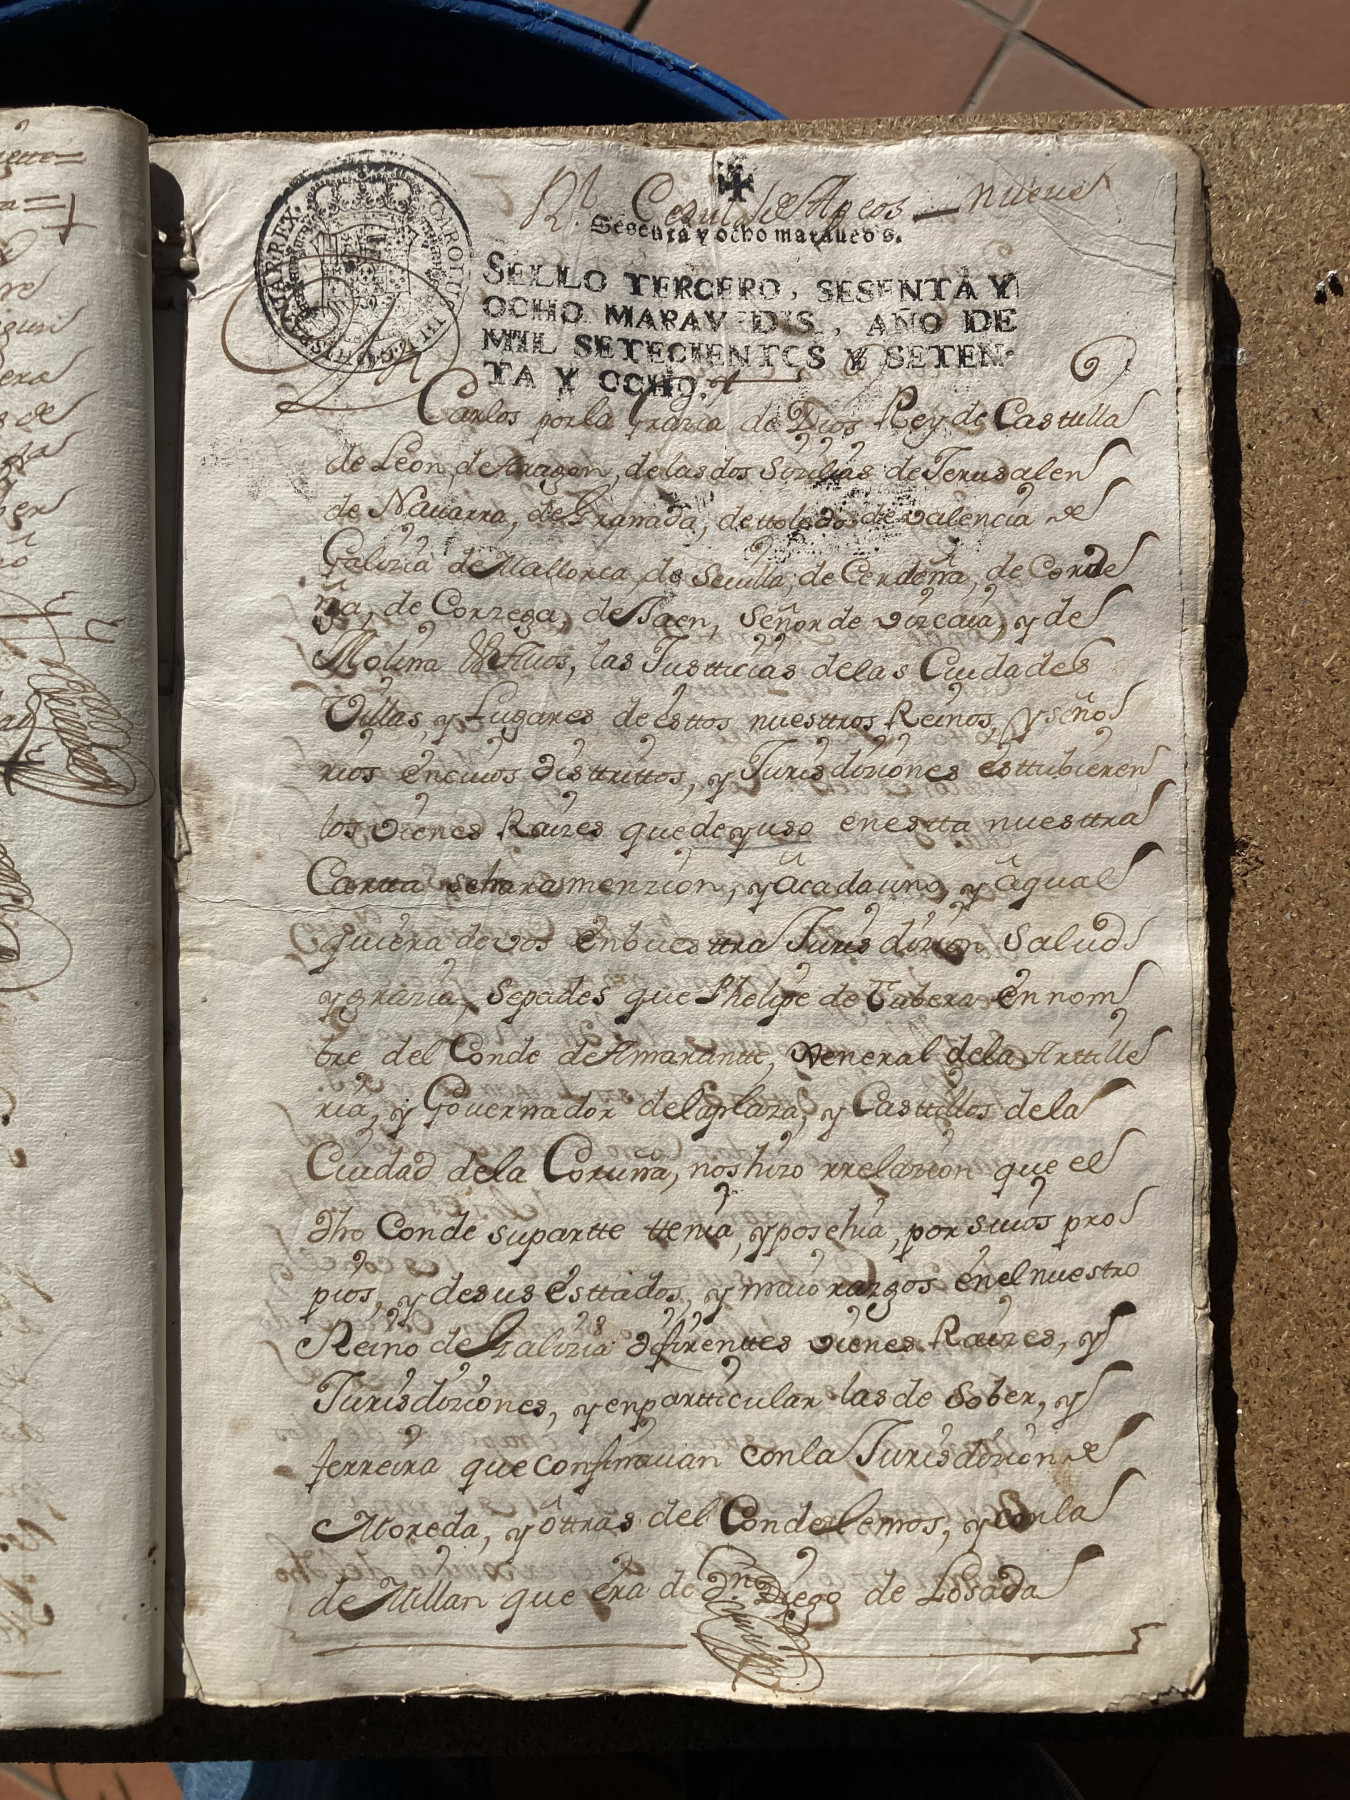 Rl. Cedul de Apeos — nueve
Sesenta y ocho maravedis.
SELLO TERCERO, SESENTA Y
OCHO MARAVEDIS, AÑO DE
MIL SETECIENTOS Y SETEN-
TA Y OCHO.
CAROLUS III D G HISPANIAR REX
Carlos por la Grazia de Dios Rey de Casttilla
de Leon, de Aragon, de las dos Sizilias de Jerusalen
de Navarra, de Granada, de ttoledo de valencia de
Galizia de Mallorca, de Sevilla, de Cerdeña, de Corde
ña, de Corzega, de Jaen, Señor de vizcaia, y de
Molina las Justticias de las Ciudades
Villas, y Lugares de esttos nuesttros Reinos, y seño
rios en cuios disttrittos, y Jurisdiziones esttubieren
los vienes Raizes que de yuso en estta nuesttra
Cartta sehara menzion, y â cada uno, y â qual
quiera de vos en buesttra Jurisdizion Salud
y grazia, Sepades que Phelipe de Tubera en nom
bre del Conde de Amarantte, General de la Arttille
ria, y Governador de la plaza, y Casttillos de la
Ciudad de la Coruña, nos hizo rrelazion que el
dho Conde su partte ttenia, y posehia, por suios pro
pios, y de sus esttados, y maiorazgos en el nuestro
Reino de Galizia difirenttes vienes Raizes, y
Jurisdiziones, y en partticular las de Sober, y
ferreira que confinavan con la Jurisdizion de
Moreda, y ottras del Conde de Lemos, y con la
de Millan que era de Dn Diego de Losada